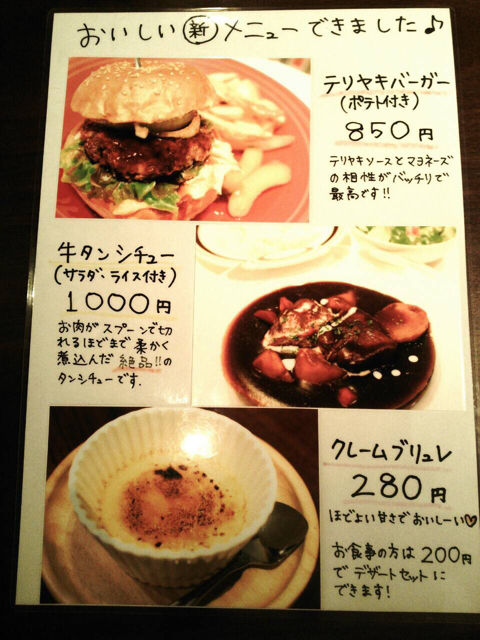 おいしい新メニューできました♪
テリヤキバーガー
(ポテト付き)
850円
テリヤキソースとマヨネーズ
の相性がバッチリで
最高です!!
牛タンシチュー
(サラダ・ライス付き)
1000円
お肉がスプーンで切
れるほどまで柔かく
煮込んだ絶品!!の
タンシチューです.
クレームブリュレ
280円
ほどよい甘さでおいしーい♡
お食事の方は200円
でデザートセットに
できます!